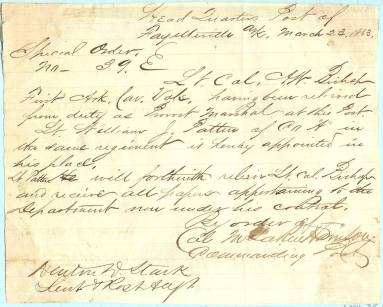 Head Quarters Post of
Fayetteville Ark, March 23, 1863.
Special Order,
No— 39, E
Lt. Col. A W Bishop
First Ark. Cav. Vols, having been relieved
from duty as Provost Marshal at this Post
Lt. William J. Patton of Co A. in
the same regiment is hereby appointed in
his place,
Lt Patton will forthwith relieve Lt. Col. Bishop
and receive all papers appertaining to the
department now under his control.
By order of
Col M LaRue Harrison
Commanding
Denton D Stark
Lieut & Post Adjt